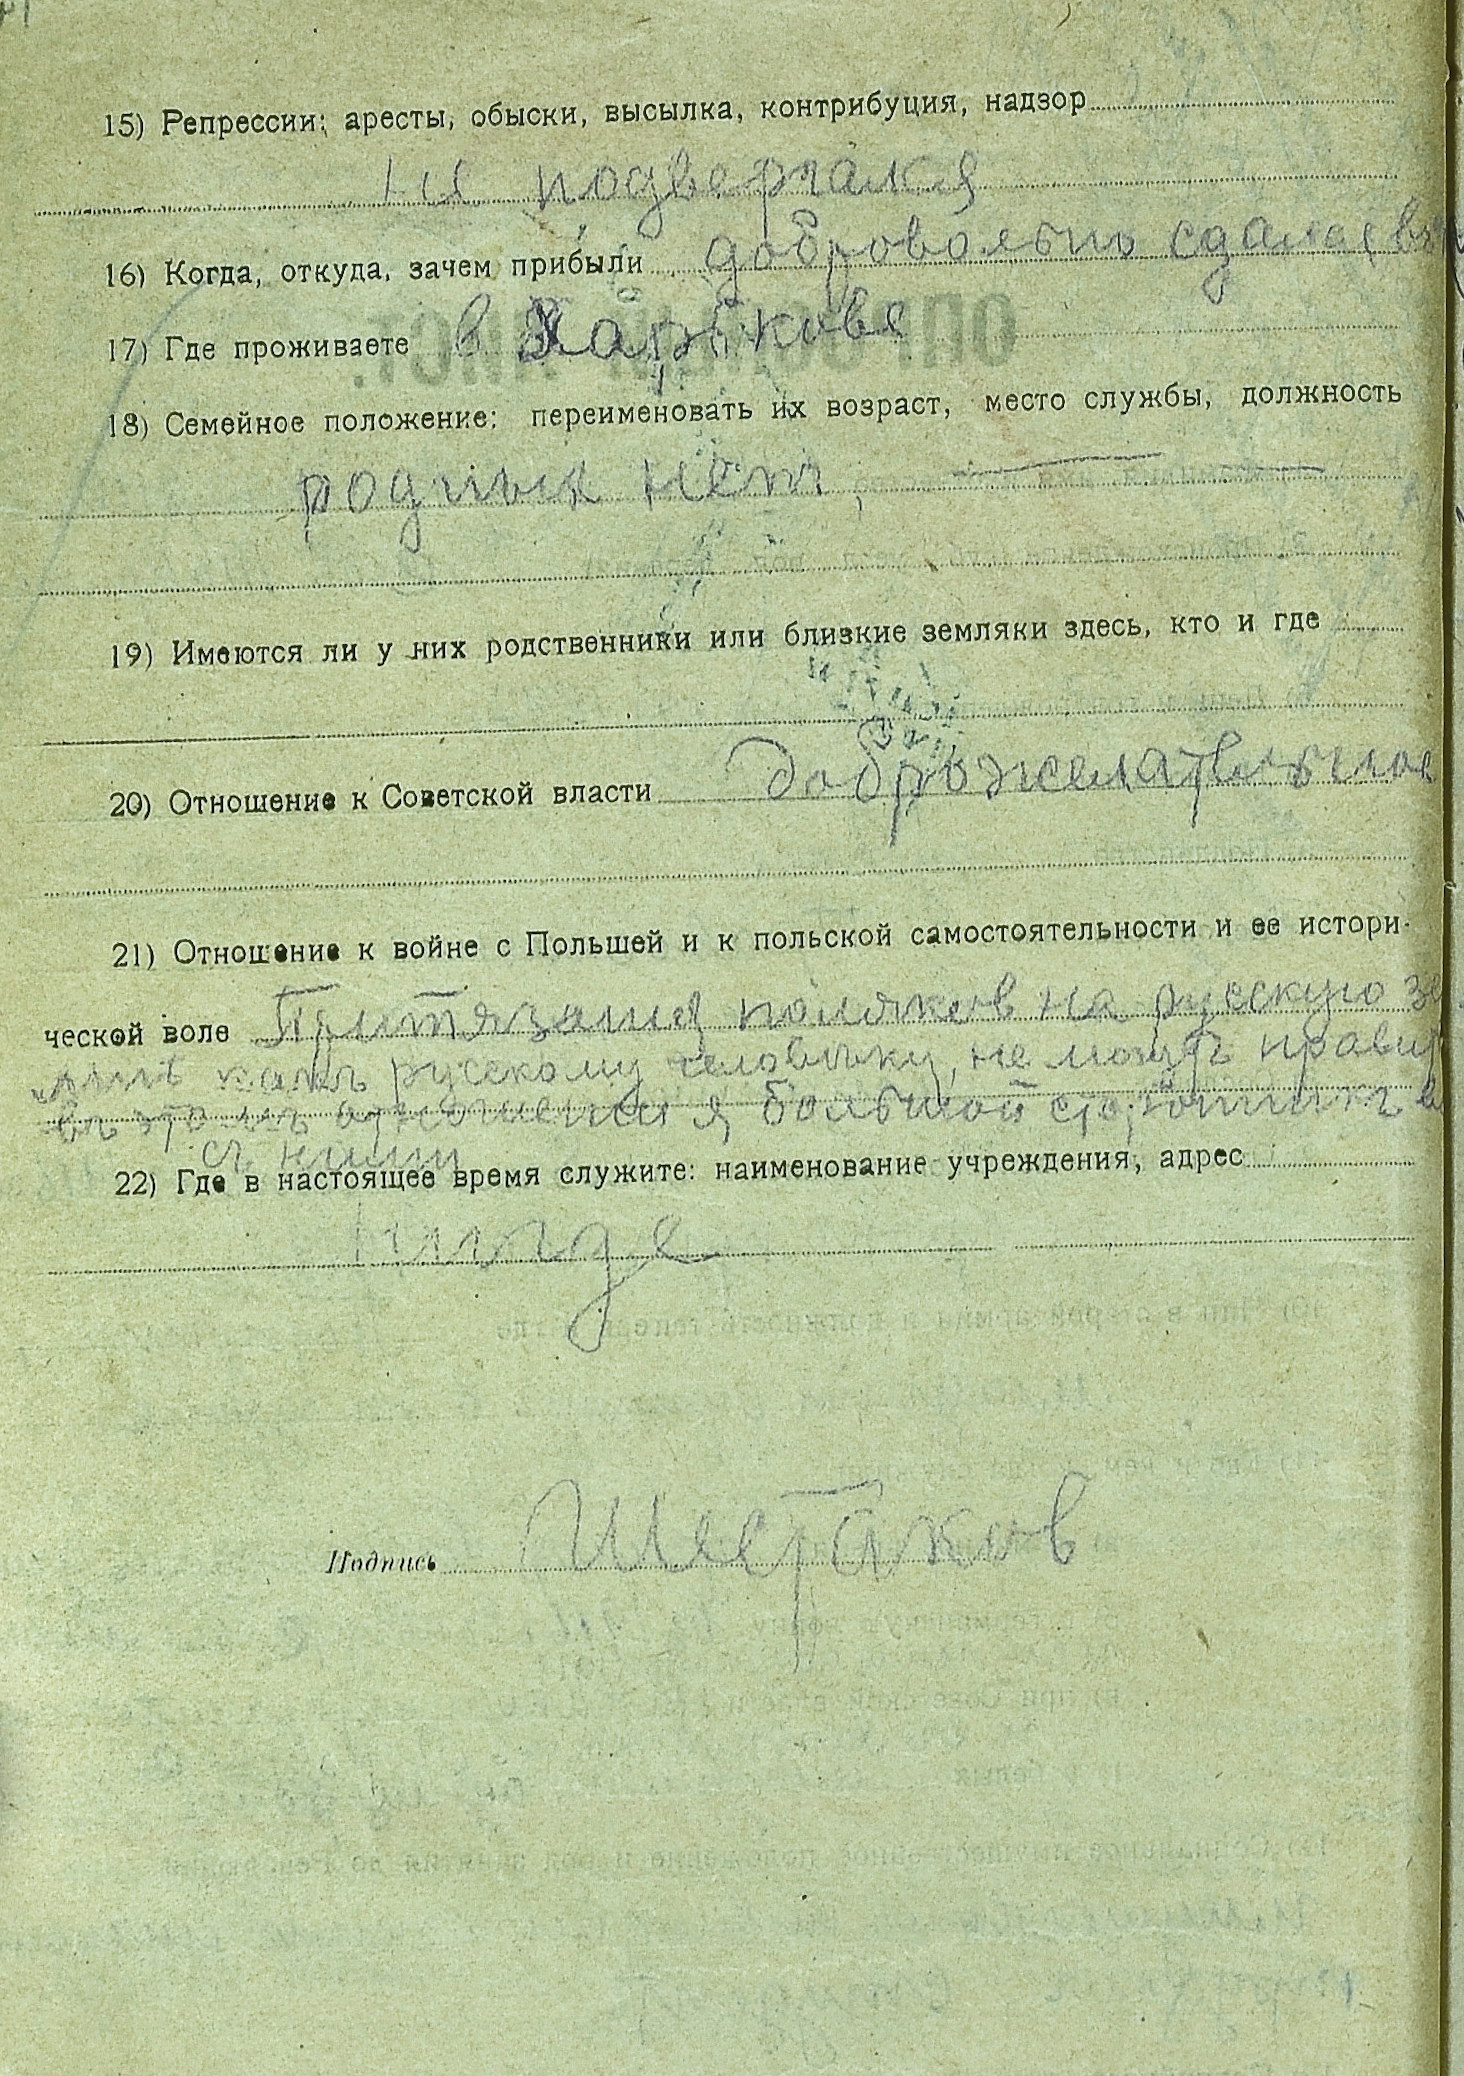 15) Репрессии: аресты, обыски, высылка, контрибуция, надзор
не подвергался
16) Когда, откуда, зачем прибыли добровольно сдался
17) Где проживаете в Харькове
18) Семейное положение: переименовать их возраст, место службы, должность
родных нет,
19) Имеются ли у них родственники или близкие земляки здесь, кто и где
20) Отношение к Советской власти доброжелательное
21) Отношение к войне с Польшей и к польской самостоятельности и ее истори-
ческой воле Притязания поляков на русскую
какъ русскому человѣку, не могут
въ этомъ отношении я большой сторонникъ
съ ними
22) Где в настоящее время служите: наименование учреждения, адрес
нигде
Подпись Шестаков